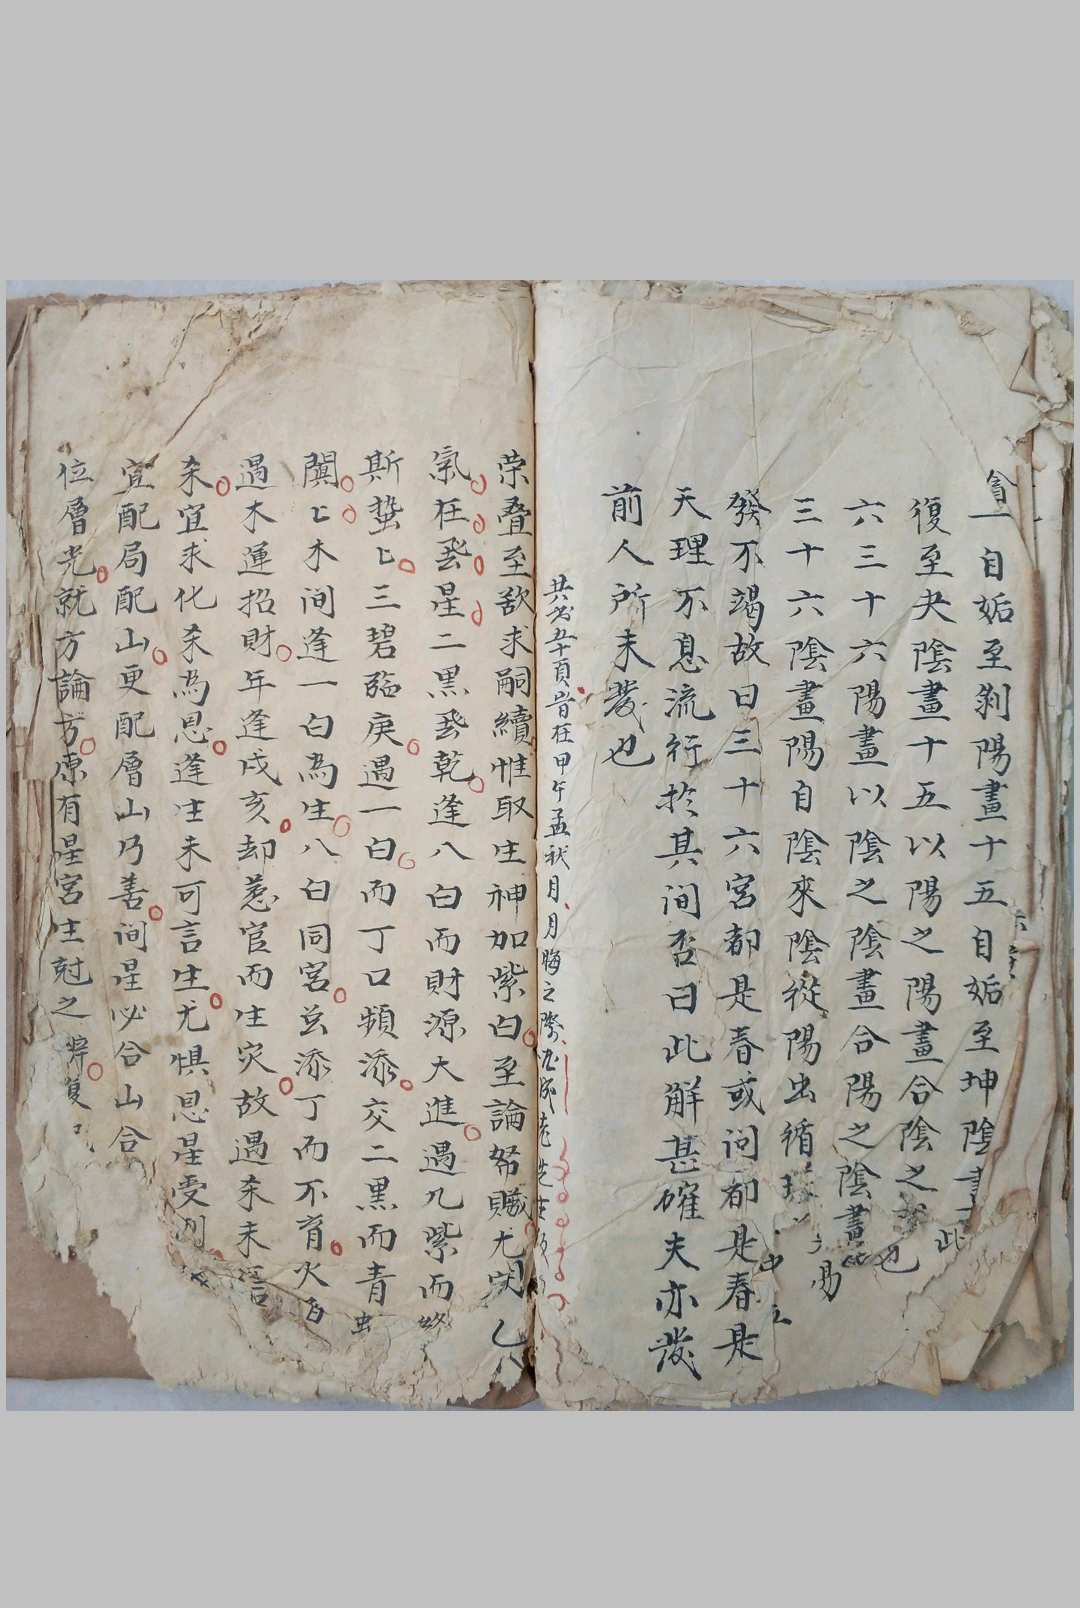 自姤至剥陽畫十五自姤至坤陰畫
復至夬陰畫十五以陽之陽畫合陰之
六三十六陽畫以陰之陰畫合陽之陰畫
三十六陰畫陽自陰來陰從陽出循
發不竭故曰三十六宮都是春或问都是春是
天理不息流行扵其间否曰此解甚確夫亦發
前人所未發也
共书五十頁旹在甲午孟秋月月晦之際
荣叠至欲求嗣續惟取生神加紫白至論帑贜尤宜
氣在飛星二黑飛乾逢八白而財源大進遇九紫而
斯蟄匕三碧臨庚遇一白而丁口頻添交二黒而青
闐匕木间逢一白為生八白同宮並添丁而不育火
遇木運招財年逢戌亥却惹官而生灾故遇杀未
杀宜求化杀為恩逢生未可言生尤惧恩星受
宜配局配山更配層山乃善间星必合山合
位層光就方論方原有星宮生尅之